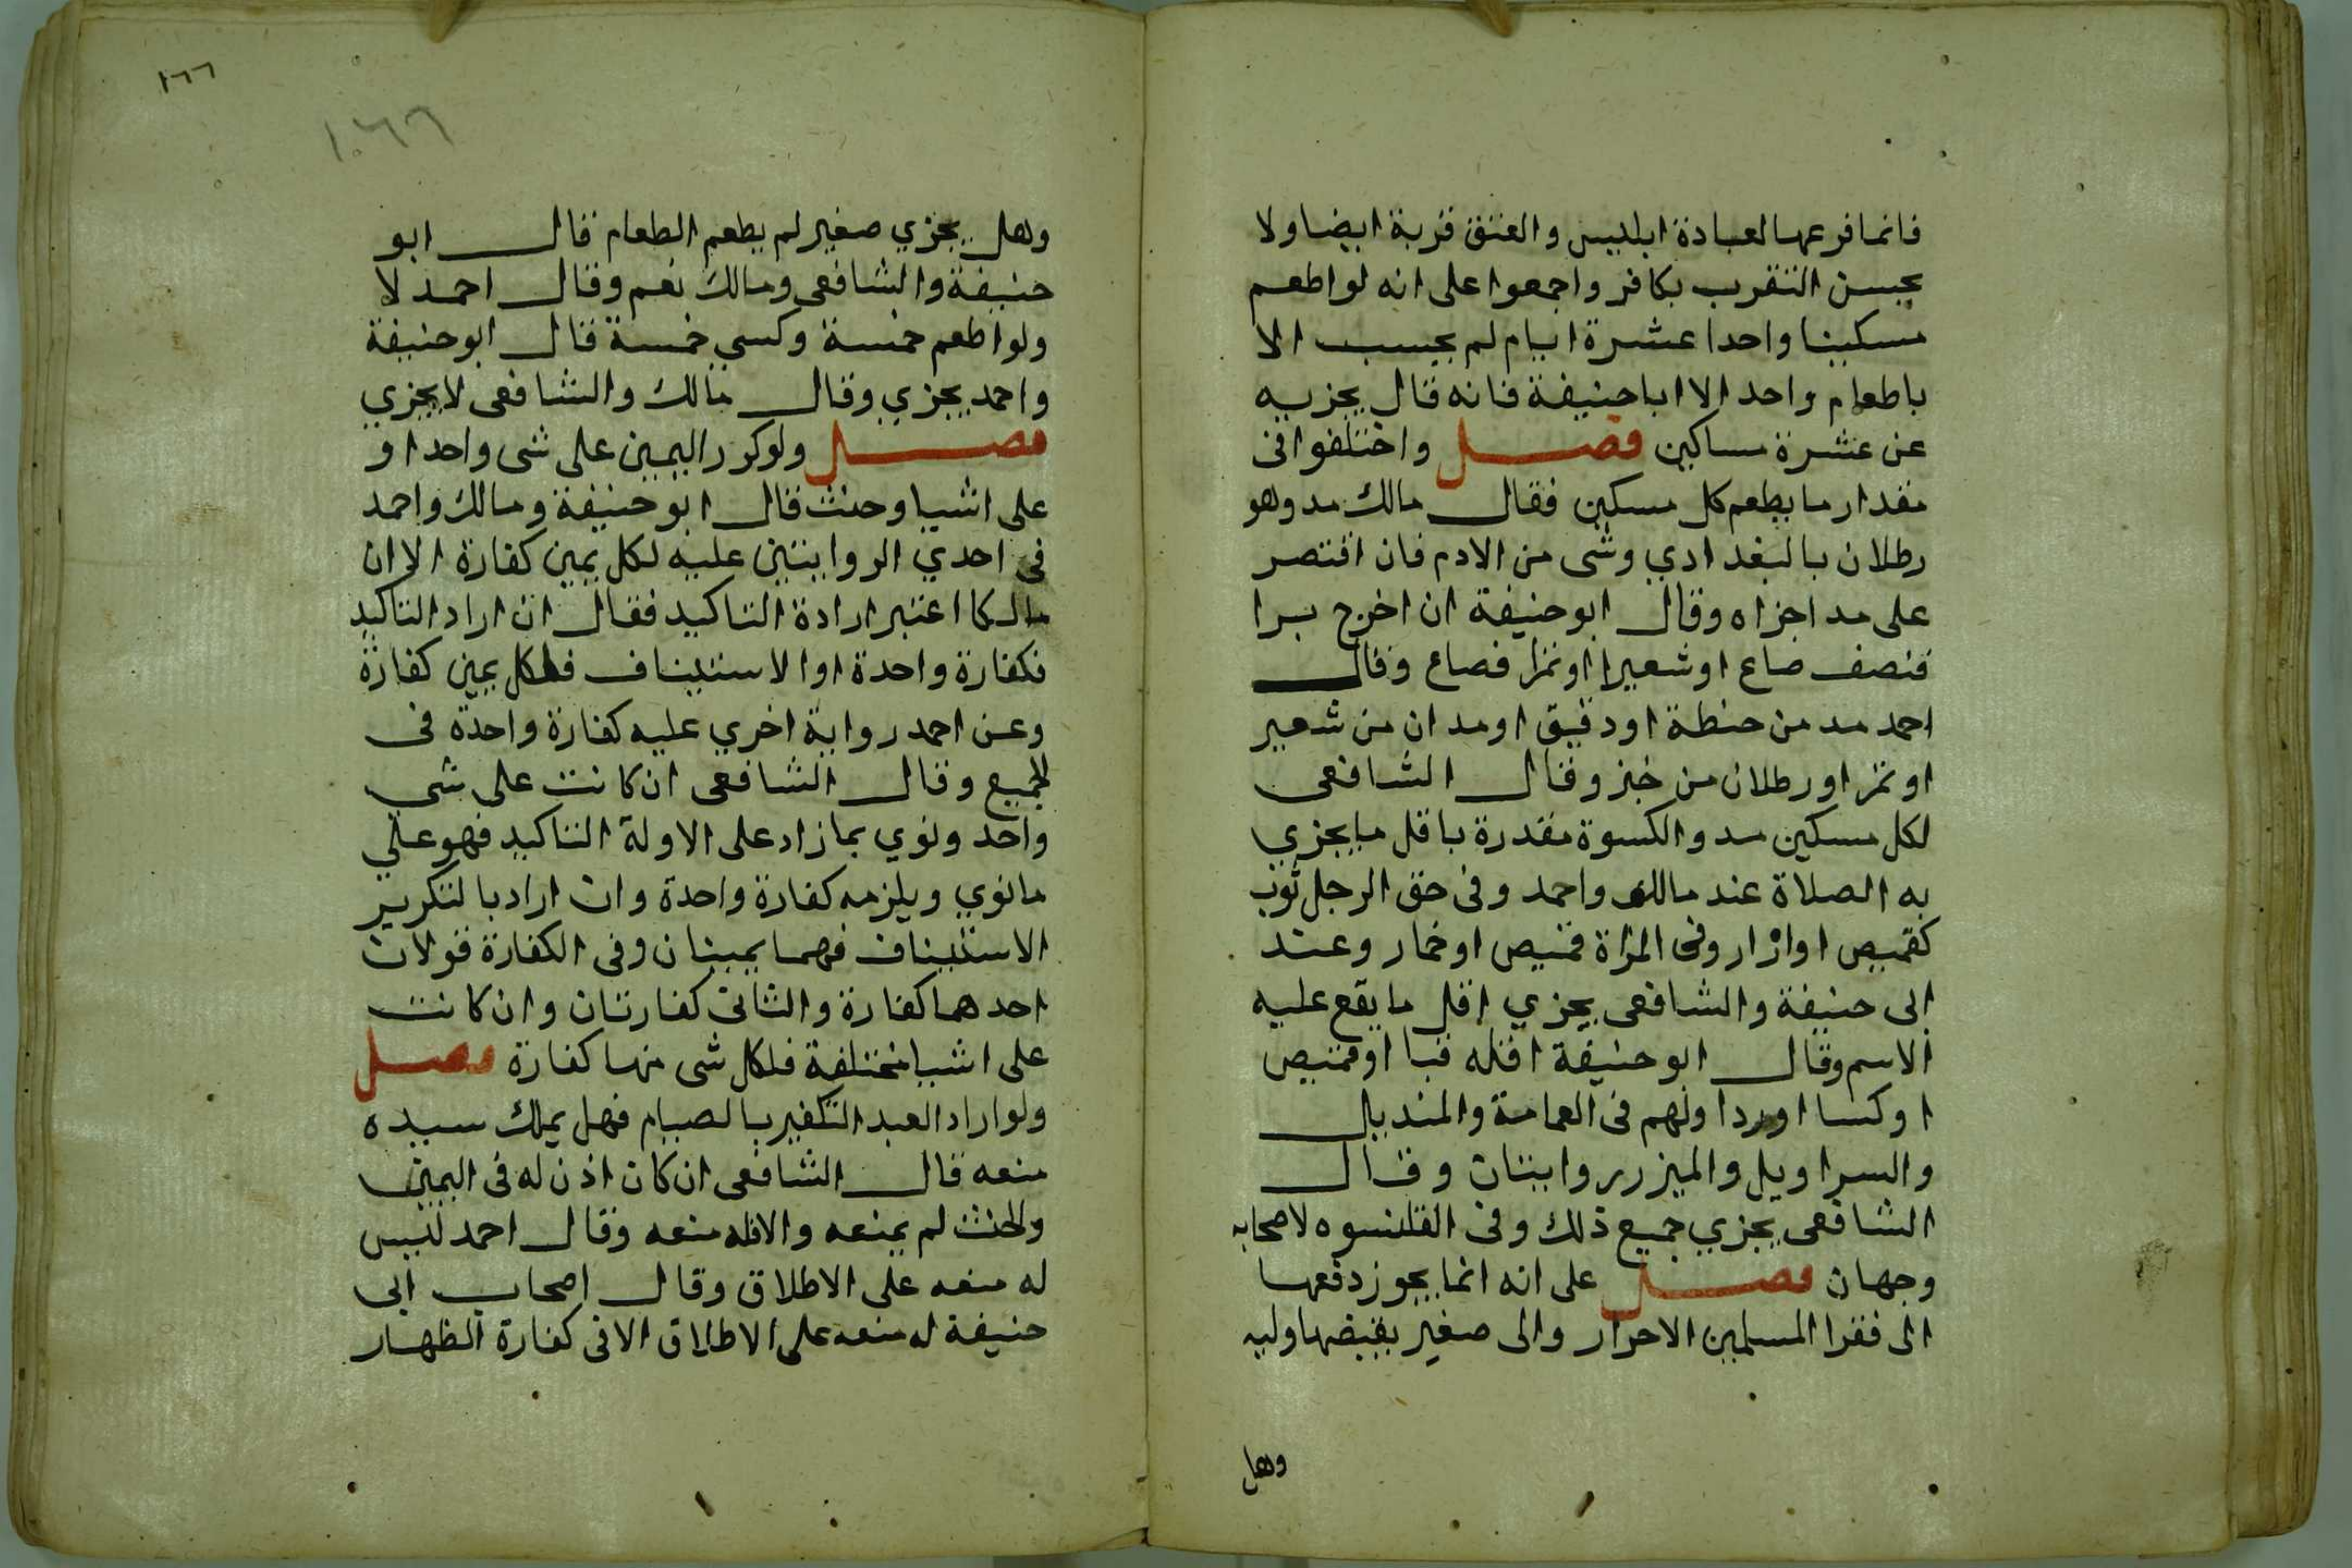 فانما فرعها لعبادة ابليس والعتق قربة ايضا ولا
يحسن التقرب بكافر واجمعوا على انه لو اطعم
مسكينا واحدا عشرة ايام لم يحسب الا
باطعام واحد الا ابا حنيفة فانه قال يجزيه
عن عشرة مساكين فصل واختلفوا فى
مقدار ما يطعم كل مسكين فقال مالك مد وهو
رطلان بالبغدادي وشى من الادم فان اقتصر
على مد اجزاه وقال ابو حنيفة ان اخرج برا
فنصف صاع او شعيرا او تمرا فصاع وقال
احمد مد من حنطة او دقيق او مدان من شعير
او تمر او رطلان من خبز وقال الشافعى
لكل مسكين مد والكسوة مقدرة باقل ما يجزي
به الصلاة عند مالك واحمد وفى حق الرجل ثوب
كقميص او ازار وفى المراة قميص او خمار وعند
ابى حنيفة والشافعى يجزي اقل ما يقع عليه
الاسم وقال ابو حنيفة اقله قبا او قميص
او كسا او ردا ولهم فى العمامة والمنديل
والسراويل والميزر روايتان وقال
الشافعى يجزي جميع ذلك وفى القلنسوه لاصحابه
وجهان فصل على انه انما يجوز دفعها
الى فقرا المسلمين الاحرار والى صغير يقبضها وليه
وهل
١٦٦
١٠٦٦
وهل يجزي صغير لم يطعم الطعام قال ابو
حنيفة والشافعى ومالك نعم وقال احمد لا
ولو اطعم خمسة وكسي خمسة قال ابو حنيفة
واحمد يجزي وقال مالك والشافعى لا يجزي
فصل ولو كرر اليمين على شى واحد او
على اشيا وحنث قال ابو حنيفة ومالك واحمد
فى احدي الروايتين عليه لكل يمين كفارة الا ان
مالكا اعتبر ارادة التاكيد فقال ان اراد التاكيد
فكفارة واحدة او الاستيناف فلكل يمين كفارة
وعن احمد رواية اخري عليه كفارة واحدة فى
الجميع وقال الشافعى ان كانت على شي
واحد ونوي بما زاد على الاولة التاكيد فهو علي
ما نوي ويلزمه كفارة واحدة وان اراد بالتكرير
الاستيناف فهما يمينان وفى الكفارة قولان
احدهما كفارة والثانى كفارتان وان كانت
على اشيا مختلفة فلكل شى منها كفارة فصل
ولو اراد العبد التكفير بالصيام فهل يملك سيده
منعه قال الشافعى ان كان اذن له فى اليمين
والحنث لم يمنعه والا فله منعه وقال احمد ليس
له منعه على الاطلاق وقال اصحاب ابى
حنيفة له منعه على الاطلاق الا فى كفارة الظهار